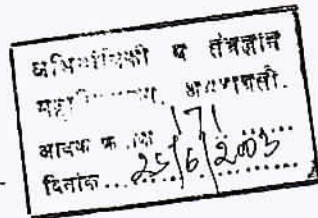 अभियांत्रिकी व तंत्रज्ञान
अमरावती.
आवक क्र. 171
दिनांक... 25/6/2003